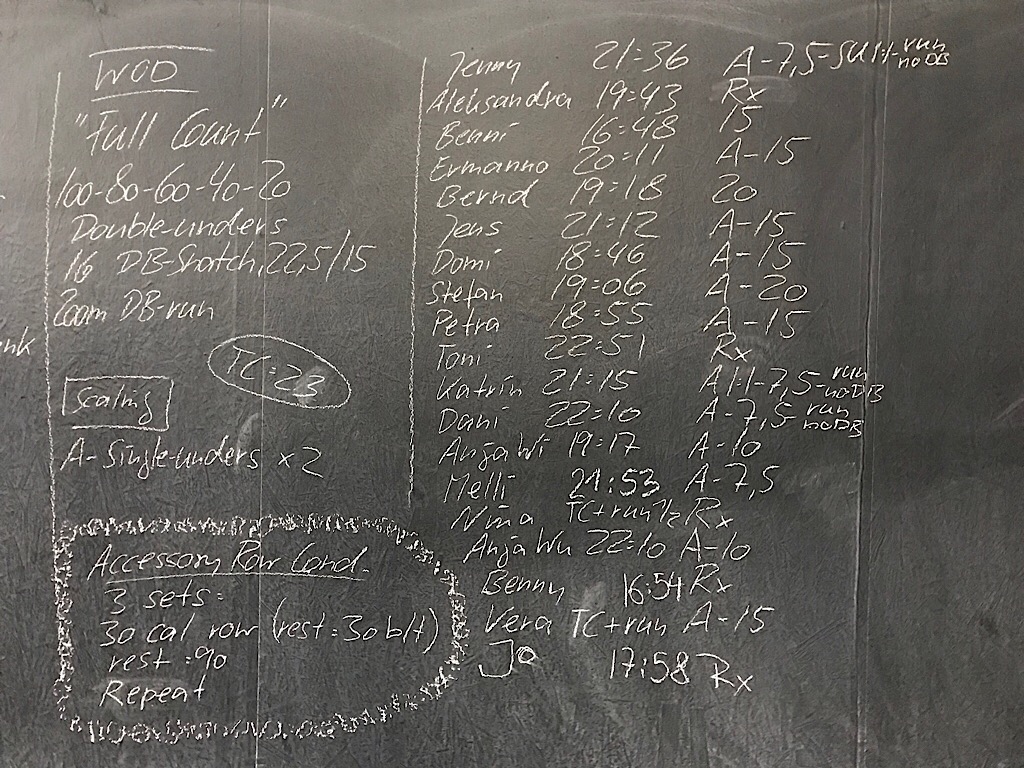 WOD
"Full Count"
100-80-60-40-20
Double-unders
16 DB-Snatch, 22,5/15
200m DB-run
TC = 23
Scaling
A- Single-unders x 2
Accessory Row Cond.
3 sets:
30 cal row (rest :30 b/t)
rest :90
Repeat
Jenny 21:36 A-7,5-run noDB
Aleksandra 19:43 Rx
Benni 16:48 15
Ermanno 20:11 A-15
Bernd 19:18 20
Jens 21:12 A-15
Domi 18:46 A-15
Stefan 19:06 A-20
Petra 18:55 A-15
Toni 22:51 Rx
Katrin 21:15 A 1:1-7,5-run noDB
Dani 22:10 A-7,5-run noDB
Anja Wi 19:17 A-10
Melli 21:53 A-7,5
Nina TC+run 1/2 Rx
Anja Wu 22:10 A-10
Benny 16:54 Rx
Vera TC+run A-15
Jo 17:58 Rx